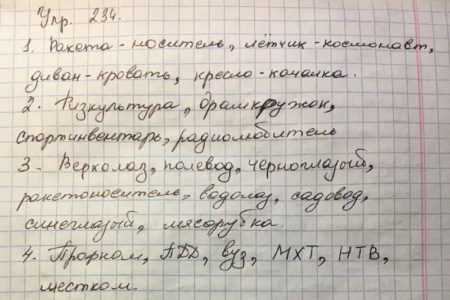 Упр. 234.
1. Ракета-носитель, лётчик-космонавт,
диван-кровать, кресло-качалка.
2. Физкультура, драмкружок,
спортинвентарь, радиолюбитель
3. Верхолаз, полевод, черноглазый,
ракетоноситель, водолаз, садовод,
синеглазый, мясорубка.
4. Профком, ПДД, вуз, МХТ, НТВ,
местком.